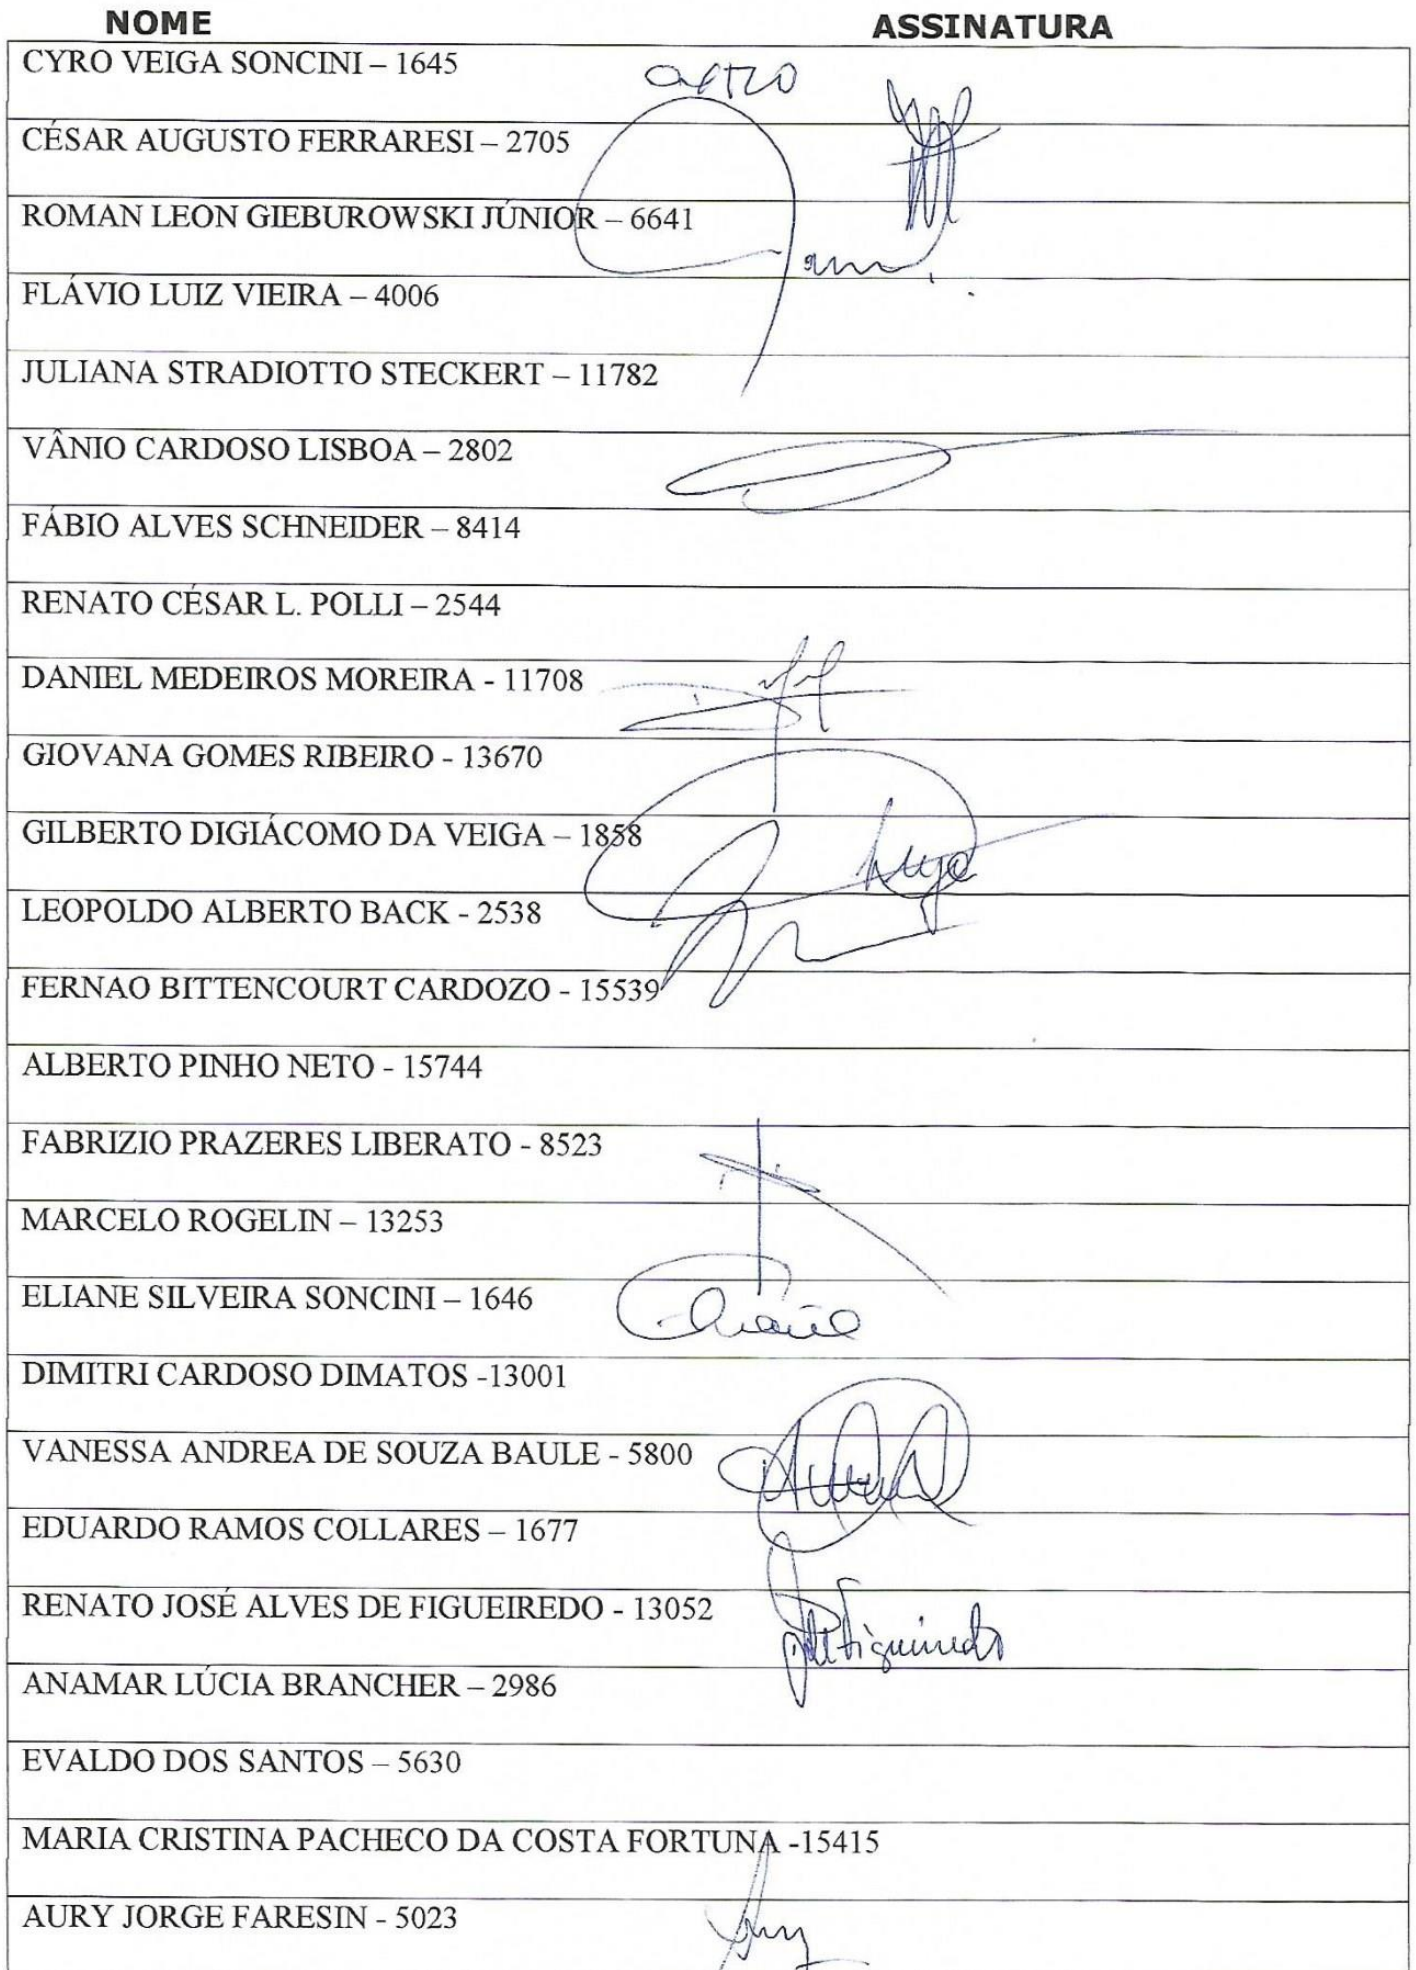 NOME ASSINATURA
CYRO VEIGA SONCINI – 1645
CÉSAR AUGUSTO FERRARESI – 2705
ROMAN LEON GIEBUROWSKI JÚNIOR – 6641
FLÁVIO LUIZ VIEIRA – 4006
JULIANA STRADIOTTO STECKERT – 11782
VÂNIO CARDOSO LISBOA – 2802
FÁBIO ALVES SCHNEIDER – 8414
RENATO CÉSAR L. POLLI – 2544
DANIEL MEDEIROS MOREIRA - 11708
GIOVANA GOMES RIBEIRO - 13670
GILBERTO DIGIÁCOMO DA VEIGA – 1858
LEOPOLDO ALBERTO BACK - 2538
FERNAO BITTENCOURT CARDOZO - 15539
ALBERTO PINHO NETO - 15744
FABRIZIO PRAZERES LIBERATO - 8523
MARCELO ROGELIN – 13253
ELIANE SILVEIRA SONCINI – 1646
DIMITRI CARDOSO DIMATOS -13001
VANESSA ANDREA DE SOUZA BAULE - 5800
EDUARDO RAMOS COLLARES – 1677
RENATO JOSÉ ALVES DE FIGUEIREDO - 13052
ANAMAR LÚCIA BRANCHER – 2986
EVALDO DOS SANTOS – 5630
MARIA CRISTINA PACHECO DA COSTA FORTUNA -15415
AURY JORGE FARESIN - 5023